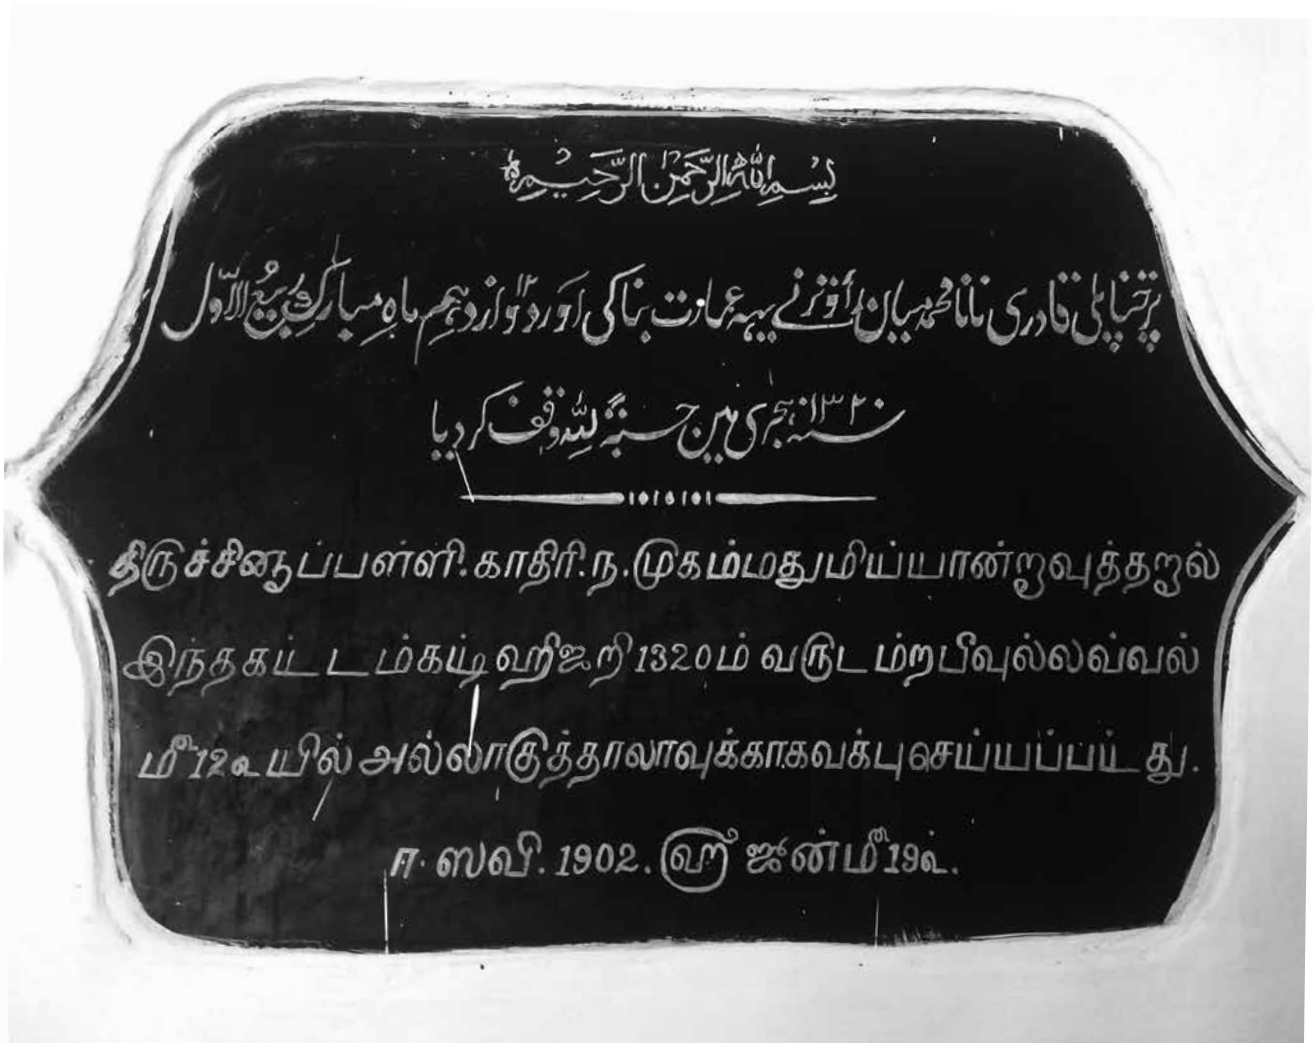 بِسْمِ اللّٰهِ الرَّحْمٰنِ الرَّحِيْمِ
ترچناپلی قادری نانا محمد میان رأوتر نے یہہ عمارت بنا کی اور دوازدہم ۱۲ ماہِ مبارک ربیع الاوّل
سنہ ۱۳۲۰ ہجری مین حسبۃً للہ وقف کردیا
திருச்சினாப்பள்ளி.காதிரி.ந.முகம்மதுமிய்யான்றாவுத்தறால்
இந்தகட்டடம்கட்டி ஹிஜறி 1320ம் வருடம்றபீவுல்லவ்வல்
மீ 12உ யில் அல்லாகுத்தாலாவுக்காகவக்புசெய்யப்பட்டது.
ஈ. ஸவி. 1902. ௵ ஜுன்மீ 19உ.